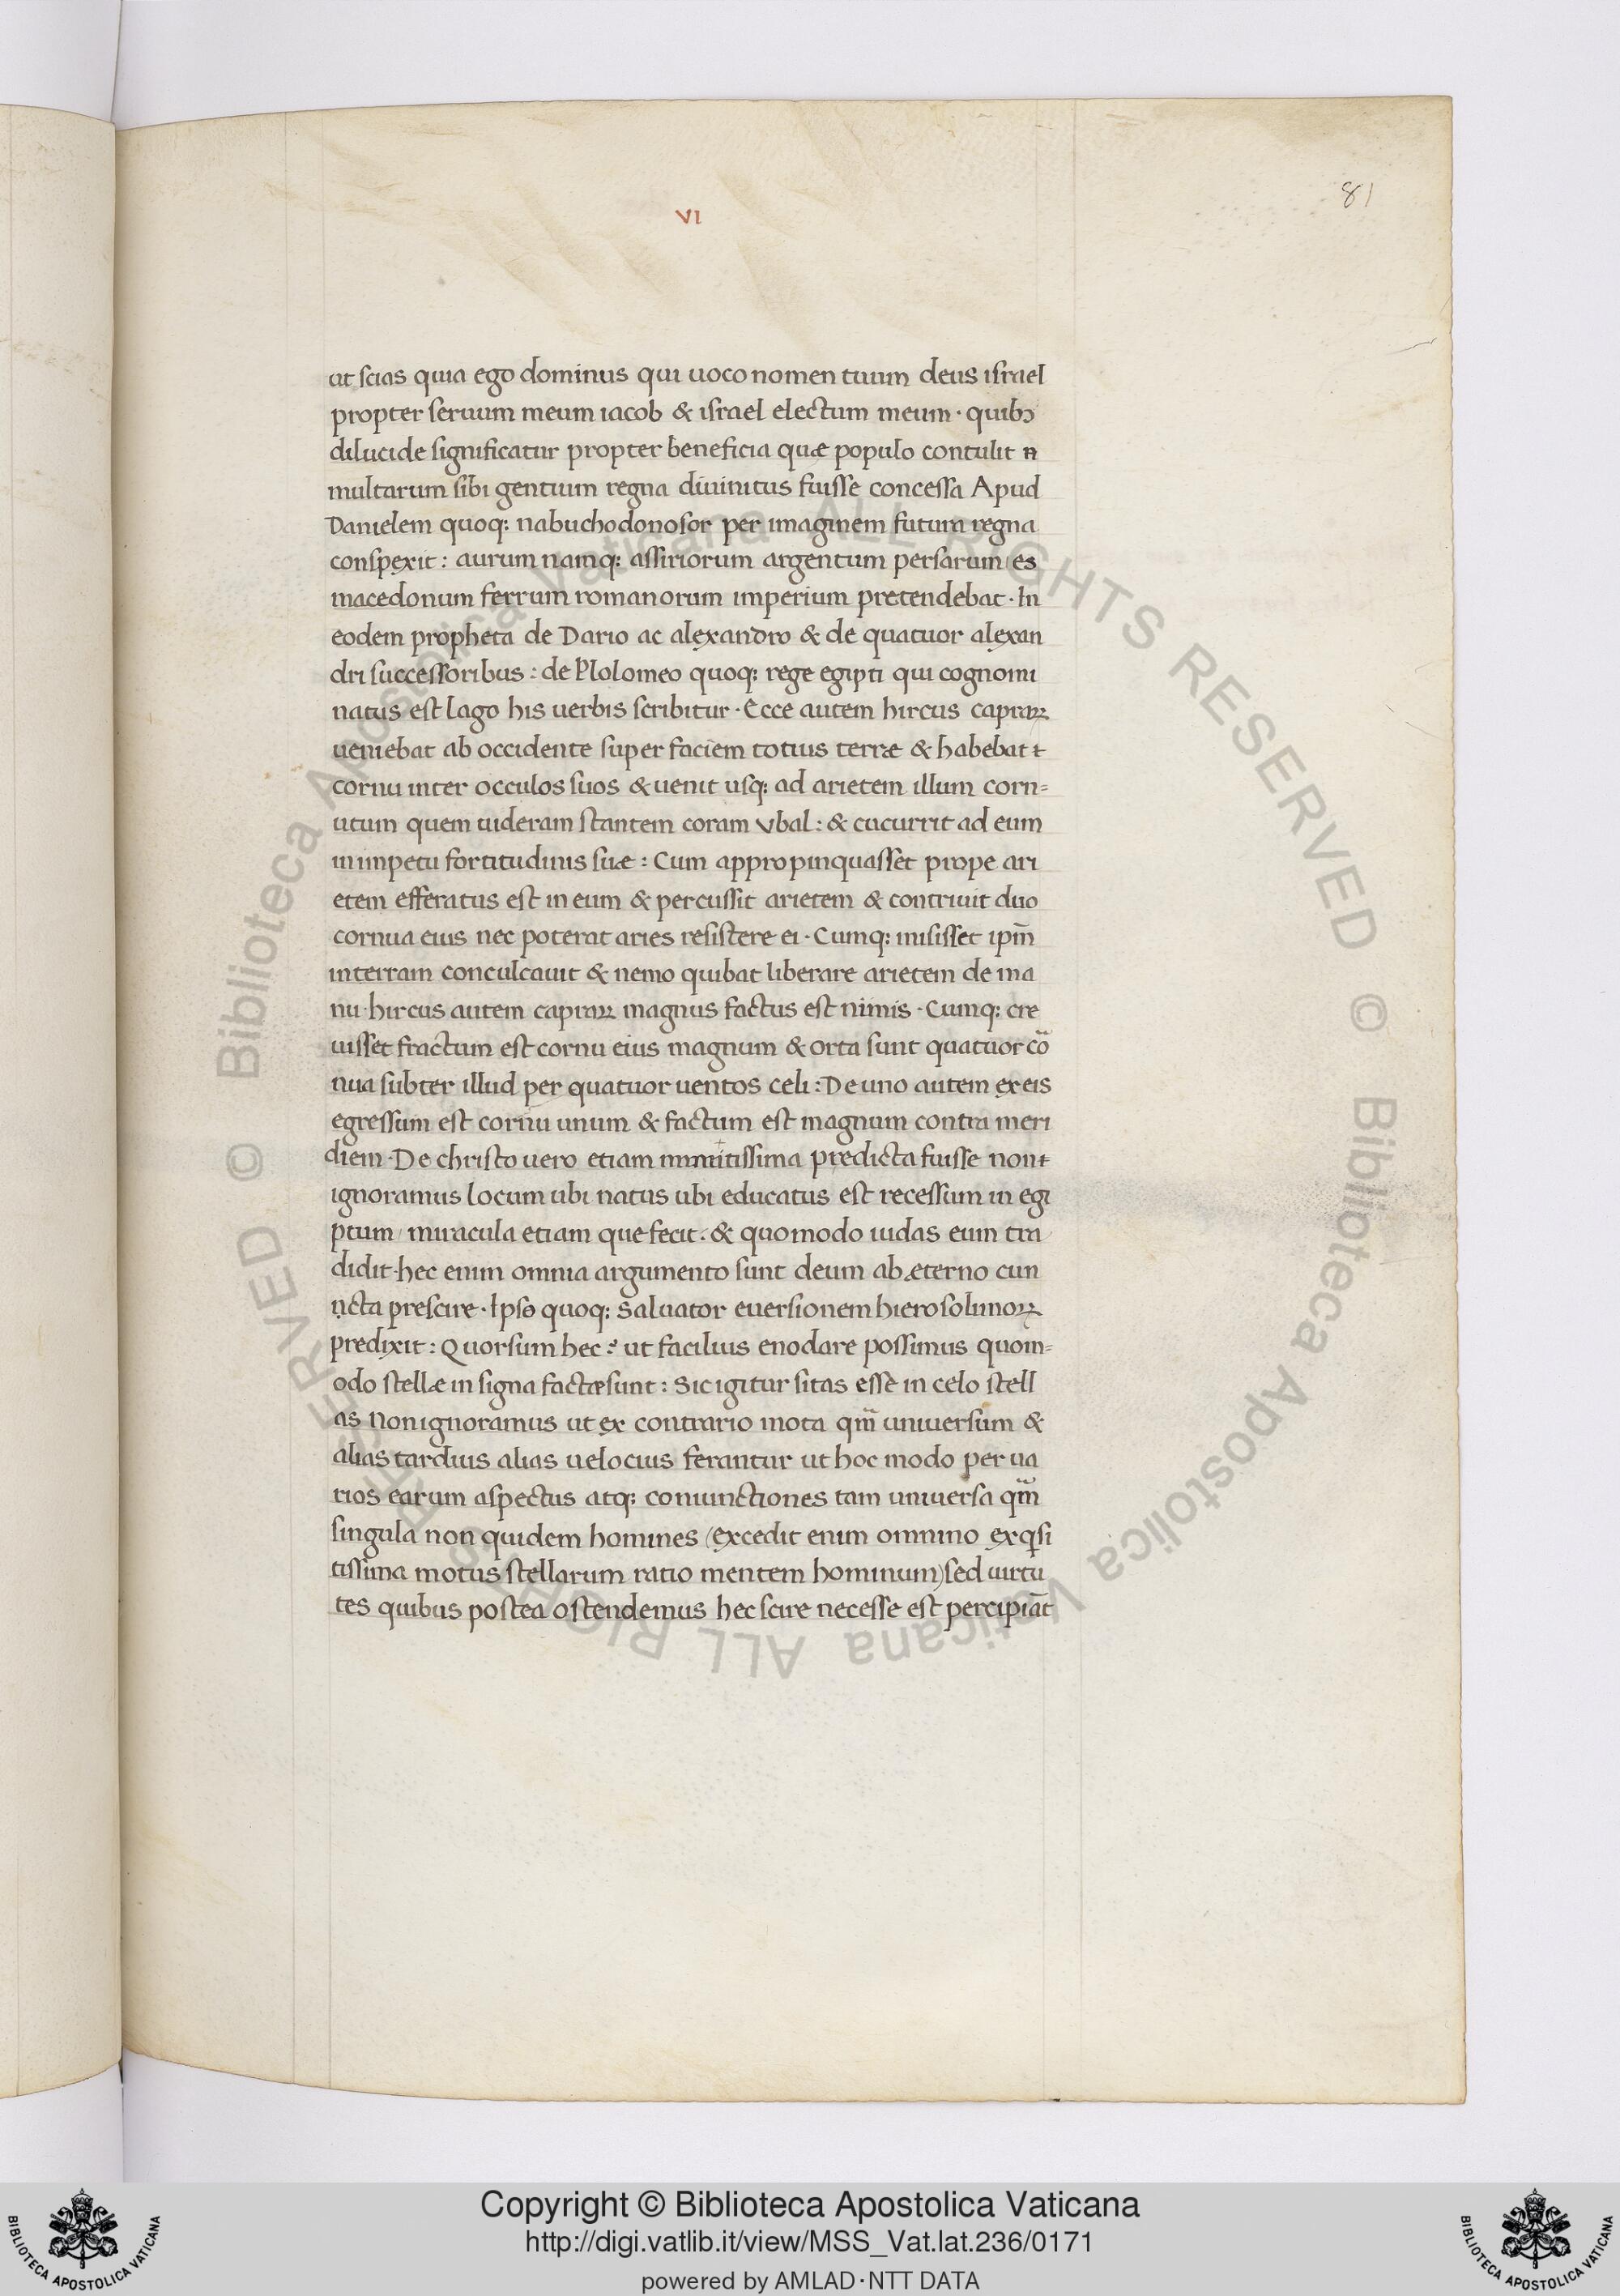 81
VI
ut scias quia ego dominus qui uoco nomen tuum deus israel
propter seruum meum iacob & israel electum meum · quibꝫ
dilucide significatur propter beneficia quæ populo contulit n̄
multarum sibi gentium regna diuinitus fuisse concessa Apud
Danielem quoq; nabuchodonosor per imaginem futura regna
conspexit : aurum namq; assiriorum argentum persarum / es
macedonum ferrum romanorum imperium pretendebat · In
eodem propheta de Dario ac alexandro & de quatuor alexan
dri successoribus : de Plolomeo quoq; rege egipti qui cognomi
natus est lago his uerbis scribitur · Ecce autem hircus capraꝝ
ueniebat ab occidente super faciem totius terræ & habebat
cornu inter occulos suos & uenit usq; ad arietem illum corn=
utum quem uideram stantem coram Vbal : & cucurrit ad eum
in impetu fortitudinis suæ : Cum appropinquasset prope ari
etem efferatus est in eum & percussit arietem & contriuit duo
cornua eius nec poterat aries resistere ei · Cumq; misisset ipm̄
interram conculcauit & nemo quibat liberare arietem de ma
nu · hircus autem capraꝝ magnus factus est nimis · Cumq; cre
uisset fractum est cornu eius magnum & orta sunt quatuor co
nua subter illud per quatuor uentos celi : De uno autem ex eis
egressum est cornu unum & factum est magnum contra meri
diem · De christo uero etiam predicta fuisse non
ignoramus locum ubi natus ubi educatus est recessum in egi
ptum / miracula etiam que fecit · & quomodo iudas eum tra
didit · hec enim omnia argumento sunt deum ab æterno cun
ncta prescire · Ipse quoq; Saluator euersionem hierosolimoꝝ
predixit : Quorsum hec ? ut facilius enodare possimus quom=
odo stellæ in signa factæ sunt : Sic igitur sitas esse in celo stell
as Non ignoramus ut ex contrario mota qm̄ uniuersum &
alias tardius alias uelocius ferantur ut hoc modo per ua
rios earum aspectus atq; coniunctiones tam uniuersa qm̄
singula non quidem homines (excedit enim omnino exqsi
tissima motus stellarum ratio mentem hominum) sed uirtu
tes quibus postea ostendemus hec scire necesse est percipiāt
© Biblioteca Apostolica Vaticana ALL RIGHTS RESERVED © Biblioteca Apostolica Vaticana ALL RIGHTS RESERVED
Copyright © Biblioteca Apostolica Vaticana
http://digi.vatlib.it/view/MSS_Vat.lat.236/0171
powered by AMLAD·NTT DATA
BIBLIOTECA APOSTOLICA VATICANA
BIBLIOTECA APOSTOLICA VATICANA